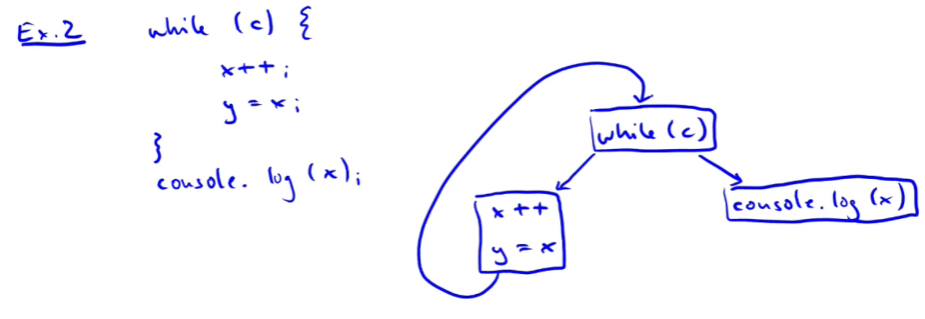 Ex.2 while (c) {
x++;
y = x;
}
console.log(x);
while (c)
x++
y = x
console.log(x)